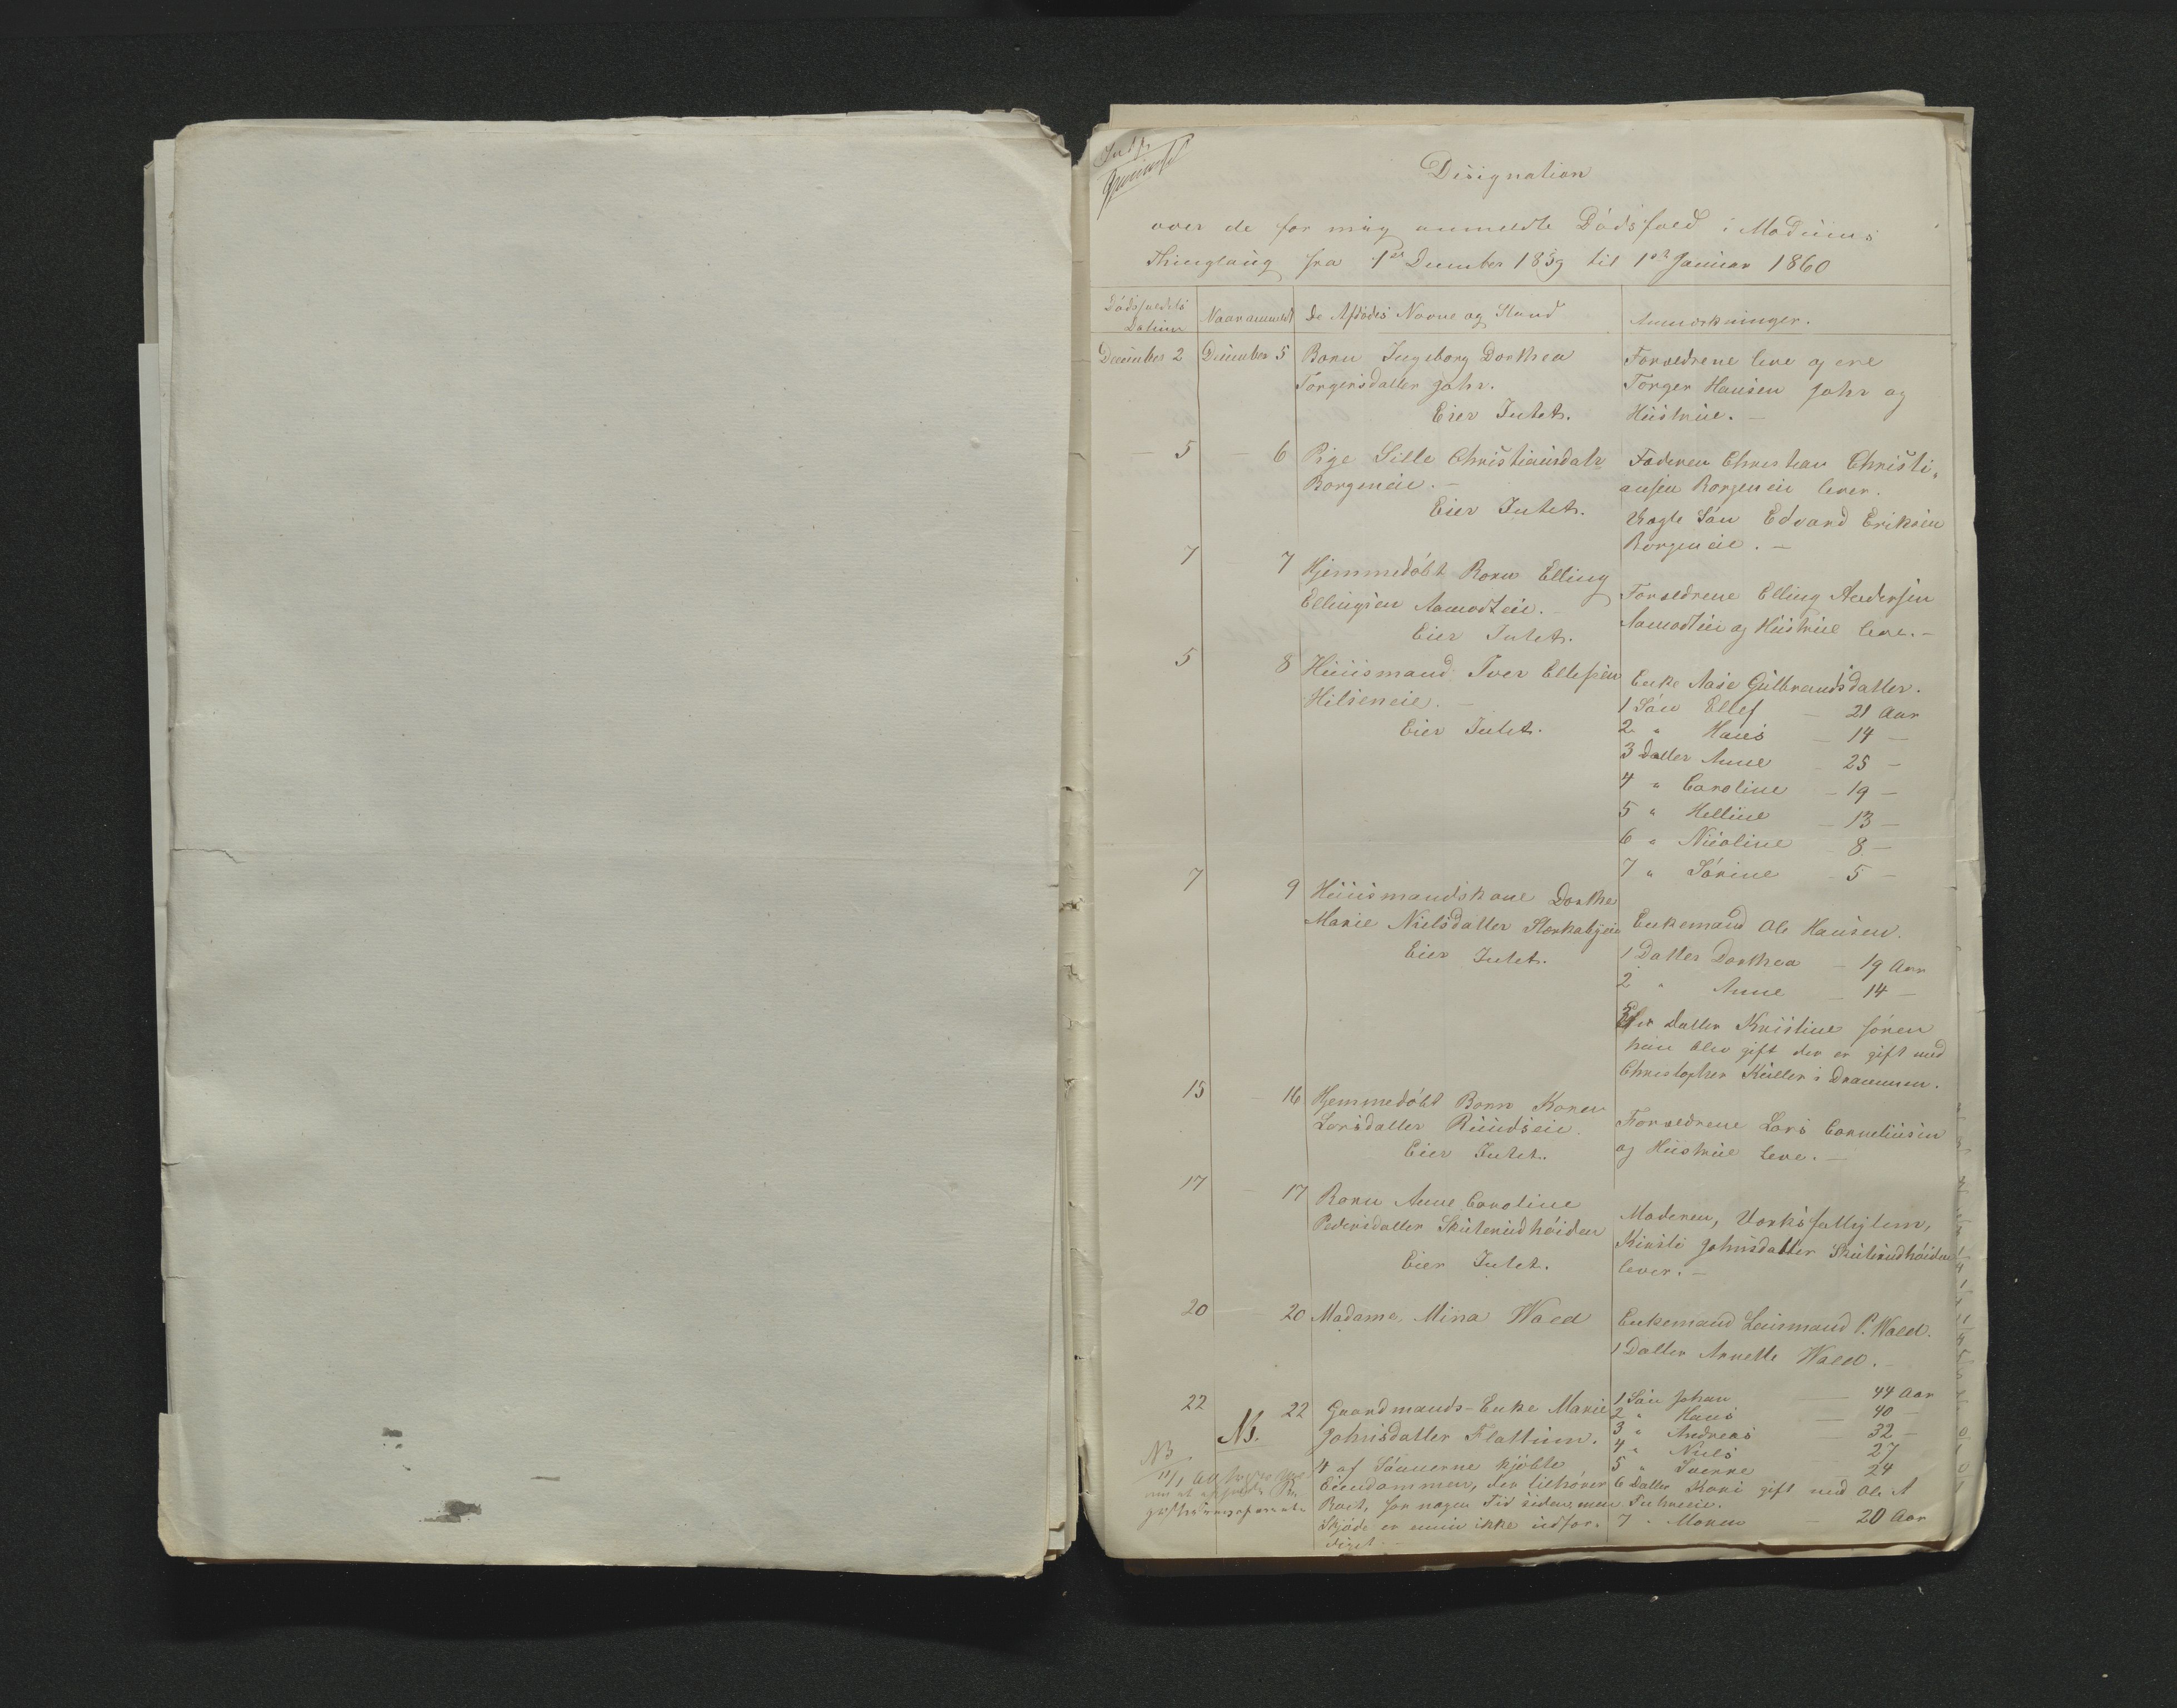 Designation
over de for mig anmeldte Dødsfald i Modums
Thinglaug fra 1ste December 1859 til 1ste Januar 1860
Dødsfaldets Datum
Naar anmeldt
De Afdødes Navne og Stand
Anmærkninger.
December 2 December 5 Barn Ingeborg Dorthea
Torgersdatter Johr.
Eier Intet.
Forældrene leve og ere
Torger Hansen Johr og
Hustrue. —
— 5 — 6 Pige Sille Christiansdatr
Borgeneie. —
Eier Intet.
Faderen Christian Christi-
ansen Borgeneie lever.
Uægte Søn Edvard Eriksen
Borgeneie. —
7 7 Hjemmedøbt Barn Elling
Ellingsen Aamodteie. —
Eier Intet.
Forældrene Elling Andersen
Aamodteie og Hustrue leve. —
5 8 Huusmand Iver Ellefsen
Hilseneie. —
Eier Intet.
Enke Aase Gulbrandsdatter.
1 Søn Ellef — 21 Aar
2 " Hans — 14 —
3 Datter Anne — 25 —
4 " Caroline — 19 —
5 " Helline — 13 —
6 " Nicoline — 8 —
7 " Sørine — 5 —
7 9 Huusmandskone Dorthe
Marie Nielsdatter
Eier Intet.
Enkemand Ole Hansen.
1 Datter Dorthea — 19 Aar
2 " Anne — 14 —
Datter Kristine føren
hun blev gift der er gift med
Christopher i Drammen.
15 — 16 Hjemmedøbt Barn Karen
Larsdatter Ruudseie.
Eier Intet.
Forældrene Lars Corneliusen
og Hustrue leve. —
17 — 17 Barn Anne Caroline
Pedersdatter Skuterudhøiden
Eier Intet.
Moderen,
Kirsti Johnsdatter Skuterudhøiden
lever. —
20 — 20 Madame Mina Wald
Enkemand Lensmand P. Wald.
1 Datter Annette Wald. —
22 22 Gaardmands-Enke Marie
NB. Johnsdatter Flattum.
4 af Sønnerne kjøbte
Eiendommen, der tilhører
Boet, for nogen Tid siden, men
Skjøde er ennu ikke udfær-
diget. —
1 Søn Johan — 44 Aar
2 " Hans — 40 —
3 " Andreas 32 —
4 " Niels 27
5 " 24
6 Datter Kari gift med Ole A
7 " Maren — 20 Aar
NB
11/1 60